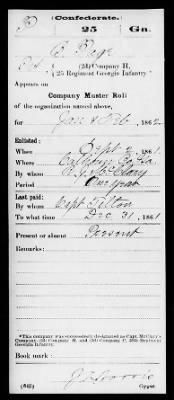 Confederate.
25 Ga.
B. Page
(2d) Company H,
25 Regiment Georgia Infantry*
Appears on
Company Muster Roll
of the organization named above,
for Jan & Feb, 1862
Enlisted:
When Sept 2, 1861
Where Calhoun Co Ga.
By whom
Period One year
Last paid:
By whom Capt Tilton
To what time Dec 31, 1861
Present or absent Present
Remarks:
*This company was successively designated as Capt.
Company, (2d) Company H, and (2d) Company
Georgia Infantry.
Book mark:
(642)
Copyist.